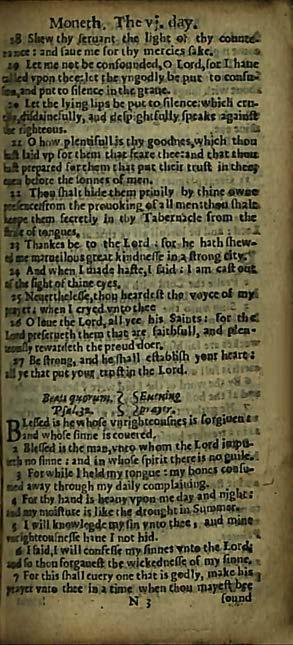 Moneth. The vj. day.
18 Shew thy seruant the light of thy counte-
nance: and saue me for thy mercies sake.
19 Let me not be confounded, O Lord, for I haue
called vpon thee: let the vngodly be put to confu-
sion, and put to silence in the graue.
20 Let the lying lips be put to silence: which cru-
elly, disdainefully, and despightfully speake against
the righteous.
21 O how plentifull is thy goodnes, which thou
hast laid vp for them that feare thee: and that thou
hast prepared for them that put their trust in thee,
euen before the sonnes of men.
22 Thou shalt hide them priuily by thine owne
presence from the prouoking of all men: thou shalt
keepe them secretly in thy Tabernacle from the
strife of tongues.
23 Thankes be to the Lord: for he hath shew-
ed me marueilous great kindnesse in a strong city.
24 And when I made haste, I said: I am cast out
of the sight of thine eyes.
25 Neuerthelesse, thou heardest the voyce of my
prayer: when I cryed vnto thee
26 O loue the Lord, all yee his Saints: for the
Lord preserueth them that are faithfull, and plen-
teously rewardeth the proud doer.
27 Be strong, and he shall establish your heart:
all ye that put your trust in the Lord.
Beati quorum. Euening
Psal. 32. prayer.
BLessed is he whose vnrighteousnes is forgiuen:
and whose sinne is couered.
2 Blessed is the man, vnto whom the Lord impu-
teth no sinne: and in whose spirit there is no guile.
3 For while I held my tongue: my bones consu-
med away through my daily complaining.
4 For thy hand is heauy vpon me day and night:
and my moisture is like the drought in Summer.
5 I will knowledge my sin vnto thee: and mine
vnrighteousnesse haue I not hid.
6 I said, I will confesse my sinnes vnto the Lord:
and so thou forgauest the wickednesse of my sinne.
7 For this shall euery one that is godly, make his
prayer vnto thee in a time when thou mayest bee
N 3 found